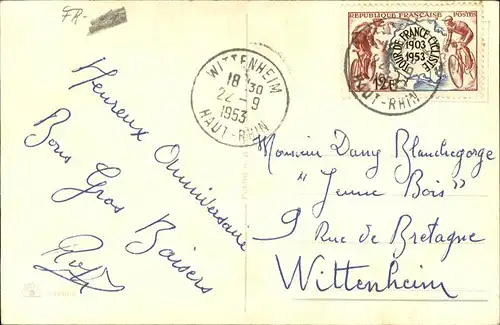 FR-
RÉPUBLIQUE FRANÇAISE POSTES
TOUR DE FRANCE CYCLISTE
1903
1953
12F
WITTENHEIM
18 30
22 - 9
1953
HAUT-RHIN
HAUT-RHIN
Heureux Anniversaire
Bons Gros Baisers
Monsieur Dany Blanchegorge
"Jeune Bois"
9 Rue de Bretagne
Wittenheim